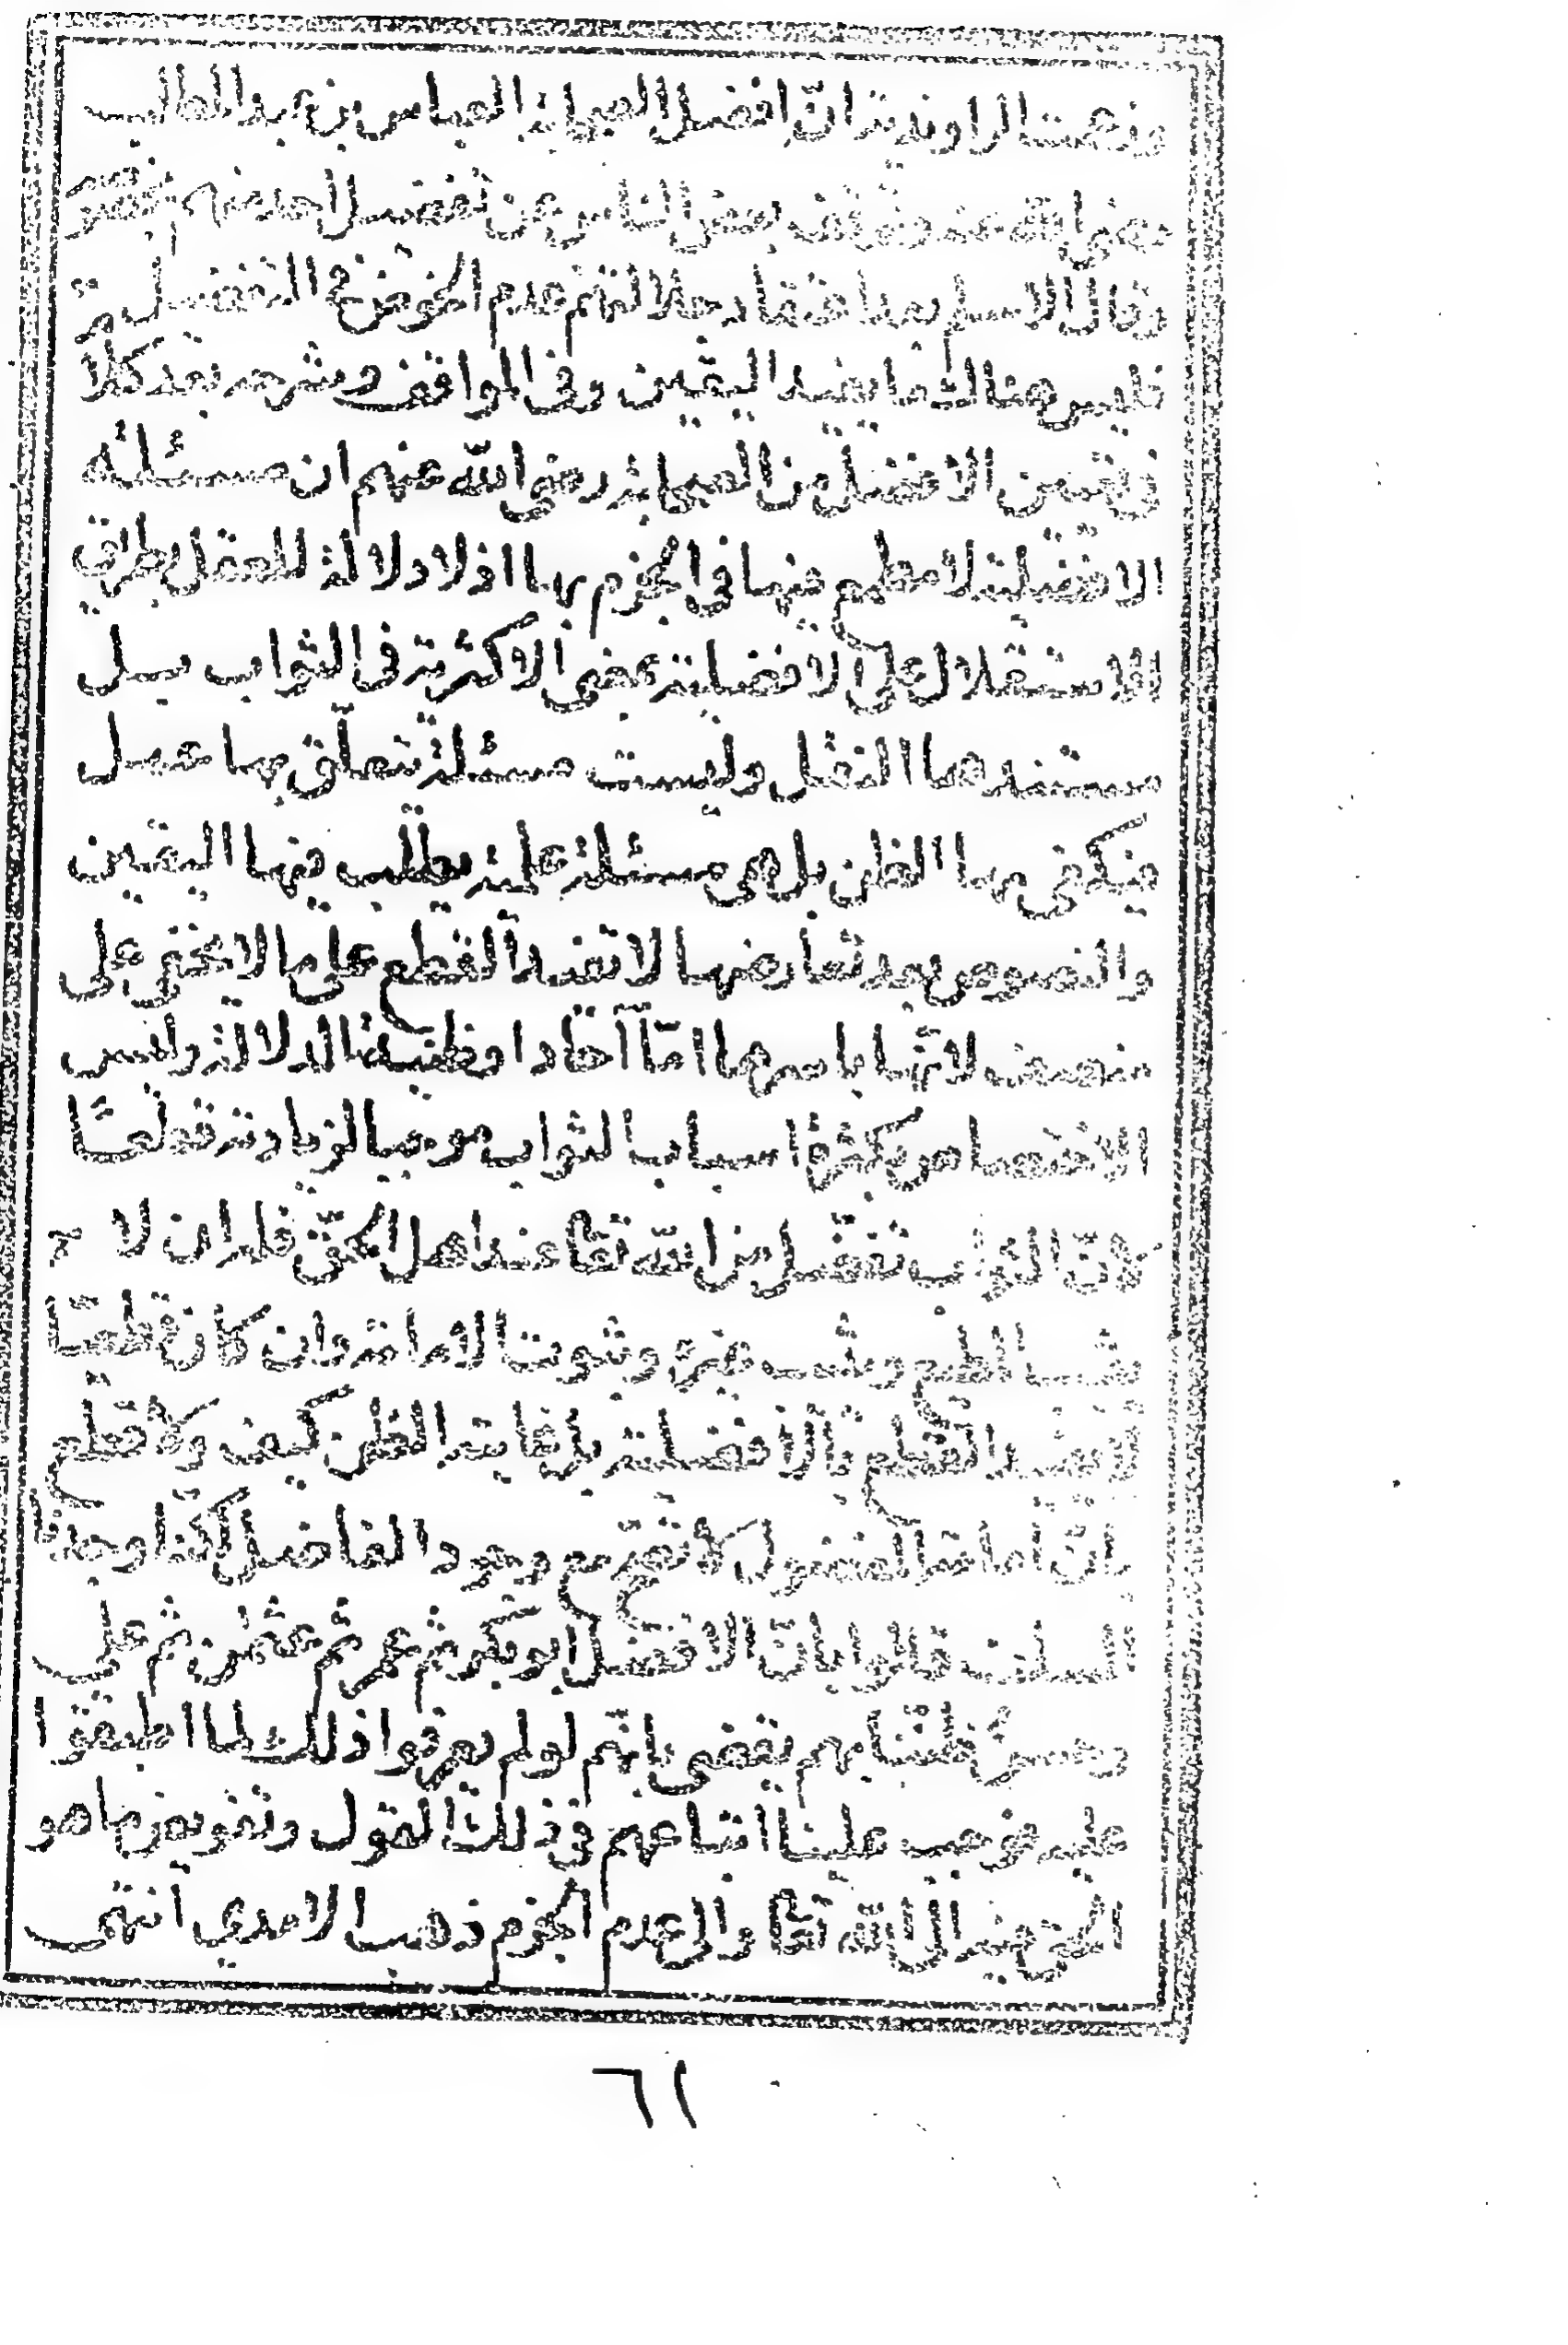 وزعمت الراوندية ان افضل الصحابة العباس بن عبد المطلب
رضى الله عنه وتوقف بعض الناس عن تفضيل احد منهم
وقال الاسلم بعد اعتقاد جلالتهم عدم الخوض فى التفضيل
فليس هنالك ما يفيد اليقين وفى المواقف وشرحه بعد كلام
فى تعيين الافضل من الصحابة رضى الله عنهم ان مسئلة
الافضلية لا مطمع فيها فى الجزم بها اذ لا دلالة للعقل بطريق
الاستقلال على الافضلية بمعنى الاكثرية فى الثواب بل
مستندها النقل وليست مسئلة تتعلق بها عمل
فيكفى بها الظن بل هى مسئلة علمية يطلب فيها اليقين
والنصوص بعد تعارضها لا تفيد القطع على ما لا يخفى على
منصف لانها باسرها امّا آحاد او ظنية الدلالة وليس
الاختصاص بكثرة اسباب الثواب موجبا لزيادته قطعا
لان الثواب تفضل من الله تعا عند اهل الحق فله ان لا
يثيب المطيع ويثيب غيره وثبوت الامامة وان كان قطعيا
لا يفيد القطع بالافضلية بل غايته الظن كيف ولا قطع
بان امامة المفضول لا تصح مع وجود الفاضل لكنا وجدنا
السلف قالوا بان الافضل ابو بكر ثم عمر ثم عثمن ثم على
وحسن ظننا بهم يقضى بانهم لو لم يعرفوا ذلك لما اطبقوا
عليه فوجب علينا اتباعهم فى ذلك القول وتفويض ما هو
الحق فيه الى الله تعا والى عدم الجزم ذهب الامدي انتهى
٦١